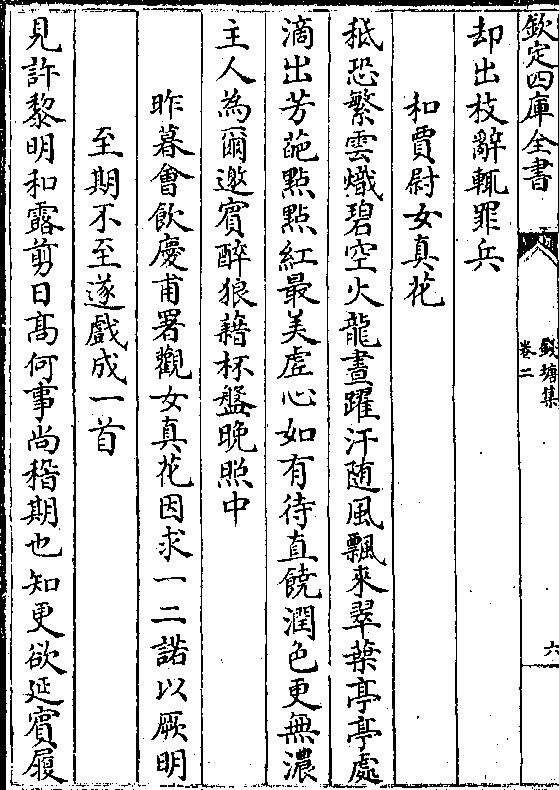 欽定四庫全書
錢塘集
卷二
六
却出枝辭輒罪兵
和賈尉女真花
秪恐繁雲熾碧空火龍晝躍汗随風飄來翠葉亭亭處
滴出芳葩點點紅最美虚心如有待直饒潤色更無濃
主人為爾邀賓醉狼藉杯盤晚照中
昨暮會飲慶甫署觀女真花因求一二諾以厥明
至期不至遂戲成一首
見許黎明和露剪日髙何事尚稽期也知更欲延賓履